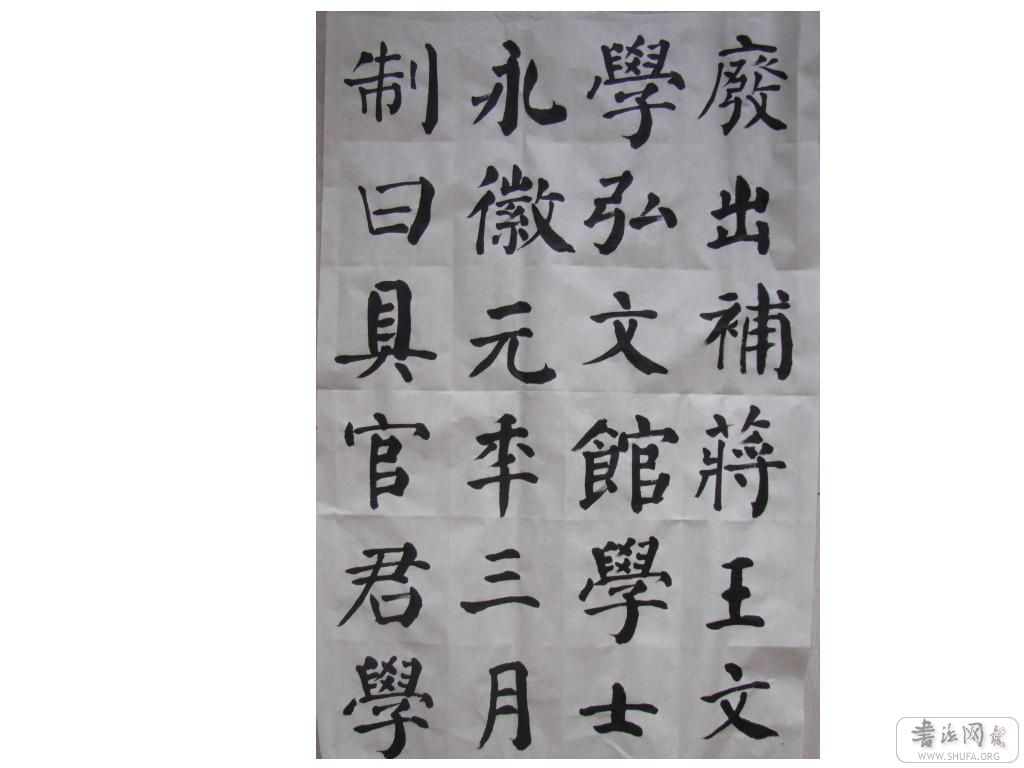 廢出補蔣王文
學弘文館學士
永徽元年三月
制曰具官君學
书法网
WWW.SHUFA.ORG